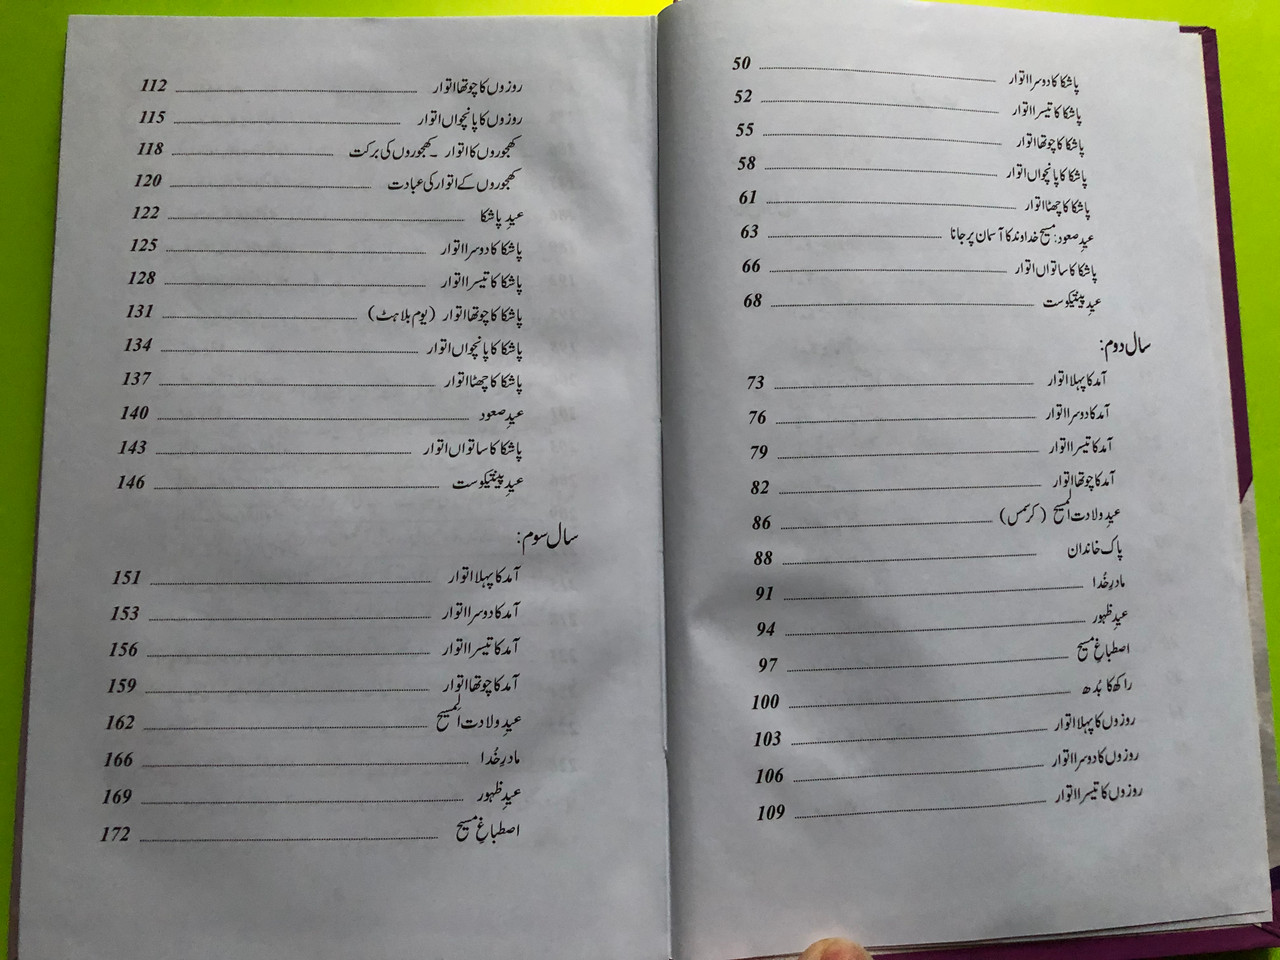 پاشکا کا دوسرا اتوار 50
پاشکا کا تیسرا اتوار 52
پاشکا کا چوتھا اتوار 55
پاشکا کا پانچواں اتوار 58
پاشکا کا چھٹا اتوار 61
عیدِ صعود: مسیح خداوند کا آسمان پر جانا 63
پاشکا کا ساتواں اتوار 66
عیدِ پینتیکوست 68
سال دوم:
آمد کا پہلا اتوار 73
آمد کا دوسرا اتوار 76
آمد کا تیسرا اتوار 79
آمد کا چوتھا اتوار 82
عیدِ ولادت المسیح (کرسمس) 86
پاک خاندان 88
مادرِ خُدا 91
عیدِ ظہور 94
اصطباغِ مسیح 97
راکھ کا بُدھ 100
روزوں کا پہلا اتوار 103
روزوں کا دوسرا اتوار 106
روزوں کا تیسرا اتوار 109
روزوں کا چوتھا اتوار 112
روزوں کا پانچواں اتوار 115
کھجوروں کا اتوار ۔ کھجوروں کی برکت 118
کھجوروں کے اتوار کی عبادت 120
عیدِ پاشکا 122
پاشکا کا دوسرا اتوار 125
پاشکا کا تیسرا اتوار 128
پاشکا کا چوتھا اتوار (یوم بلاہٹ) 131
پاشکا کا پانچواں اتوار 134
پاشکا کا چھٹا اتوار 137
عیدِ صعود 140
پاشکا کا ساتواں اتوار 143
عیدِ پینتیکوست 146
سال سوم:
آمد کا پہلا اتوار 151
آمد کا دوسرا اتوار 153
آمد کا تیسرا اتوار 156
آمد کا چوتھا اتوار 159
عیدِ ولادت المسیح 162
مادرِ خُدا 166
عیدِ ظہور 169
اصطباغِ مسیح 172